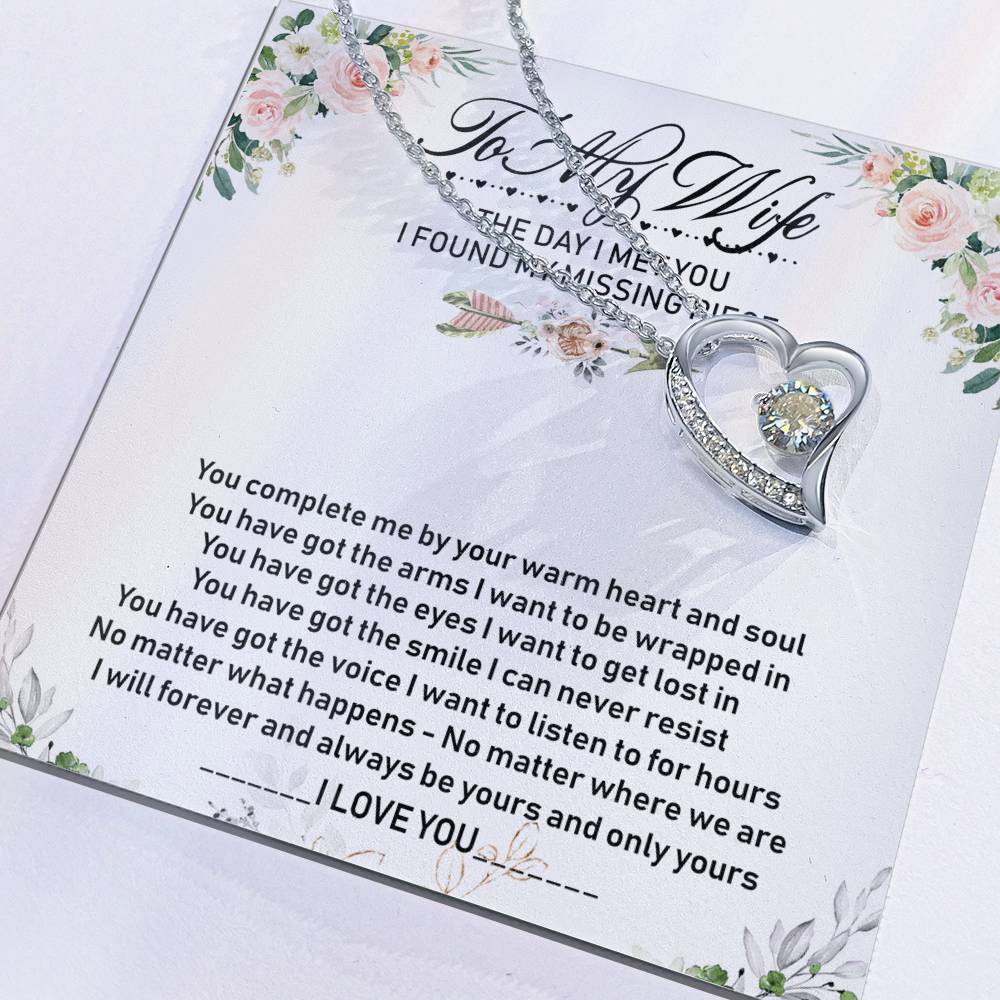 To My Wife
THE DAY I MET YOU
I FOUND MY MISSING PIECE
You complete me by your warm heart and soul
You have got the arms I want to be wrapped in
You have got the eyes I want to get lost in
You have got the smile I can never resist
You have got the voice I want to listen to for hours
No matter what happens - No matter where we are
I will forever and always be yours and only yours
________I LOVE YOU________